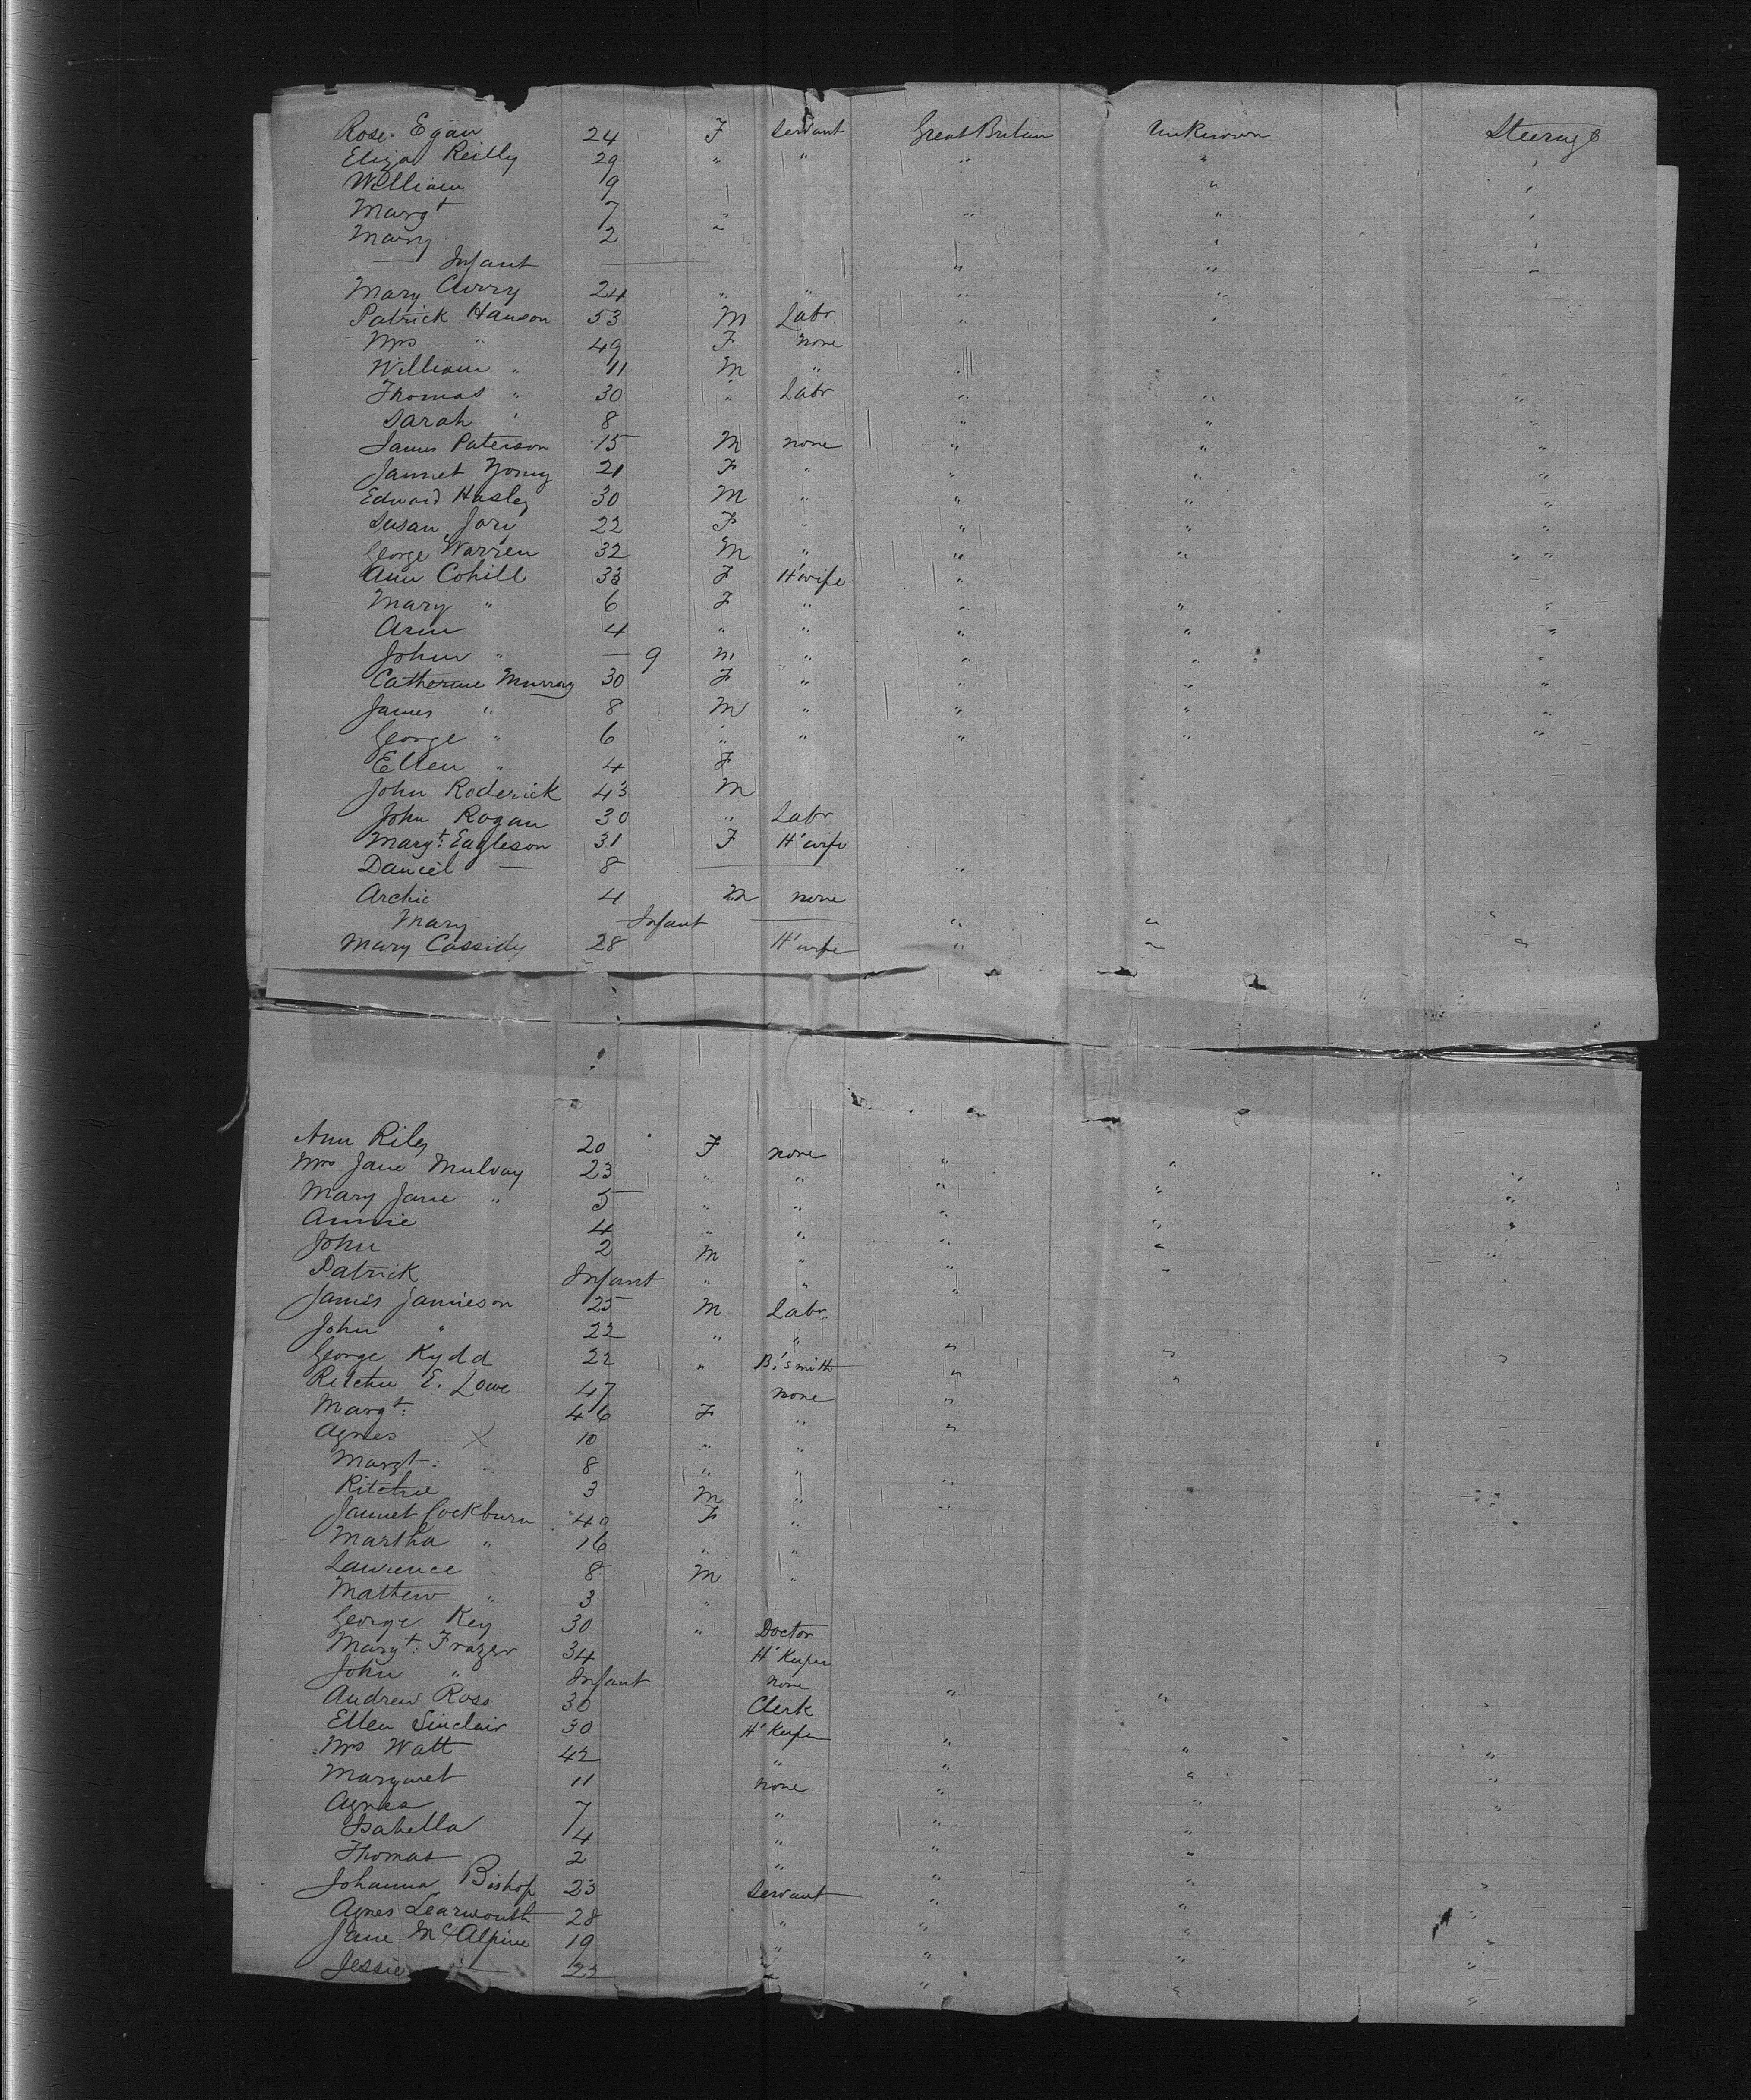 Rose Egan 24 F Servant Great Britain Unknown Steerage
Eliza Reilly 29 " " " " "
William 9 " "
Margt 7 " " " "
Mary 2 " " "
— Infant — " " "
Mary Curry 24 " " " "
Patrick Hanson 53 M Labr. " "
Mrs " 49 F none
William " 11 M " "
Thomas " 30 " Labr " " "
Sarah " 8 " " "
James Paterson 15 M none " " "
Jannet Young 21 F " " " "
Edward Hasley 30 M " " " "
Susan 22 F " " " "
George Warren 32 M " " " " "
Ann Cohill 33 F H'wife "
Mary " 6 F " " " "
Ann 4 " " " " "
John " — 9 m " " " "
Catherine Murray 30 F " " " "
James " 8 M " " " "
George " 6 " " " " "
Ellen " 4 F
John Roderick 43 M
John Rogan 30 " Labr
Margt: Eagleson 31 F H'wife
Daniel — 8 — "
Archie 4 M none
Mary Infant — " " "
Mary Cassidy 28 H'wife " " "
Ann Riley 20 F none " " " "
Mrs Jane Mulvay 23 " " " " "
Mary Jane " 5 " " " " "
Annie 4 " " " " "
John 2 M " " "
Patrick Infant " " "
James Jamieson 25 M Labr.
John " 22 " " " " "
George Kydd 22 " B'smith " "
Ritchie E. Lowe 47 none "
Margt: 46 F " "
Agnes X 10 " "
Margt: 8 " " "
Ritchie 3 M " "
Jannet Cockburn 40 F "
Martha " 16 " "
Lawrence 8 M "
Mathew " 3 "
George Key 30 " Doctor
Margt: Frazer 34 H'Keeper
John " Infant none " "
Andrew Ross 30 Clerk "
Ellen Sinclair 30 H'Keeper " " "
Mrs Watt 42 " " " "
Margaret 11 none " " "
Agnes 7 " " "
Isabella 4 " " "
Thomas 2 " " " "
Johanna Bishop 23 Servant " " "
Agnes Learmonth 28 " " " "
Jane McAlpine 19 " " " "
Jessie — " " " "